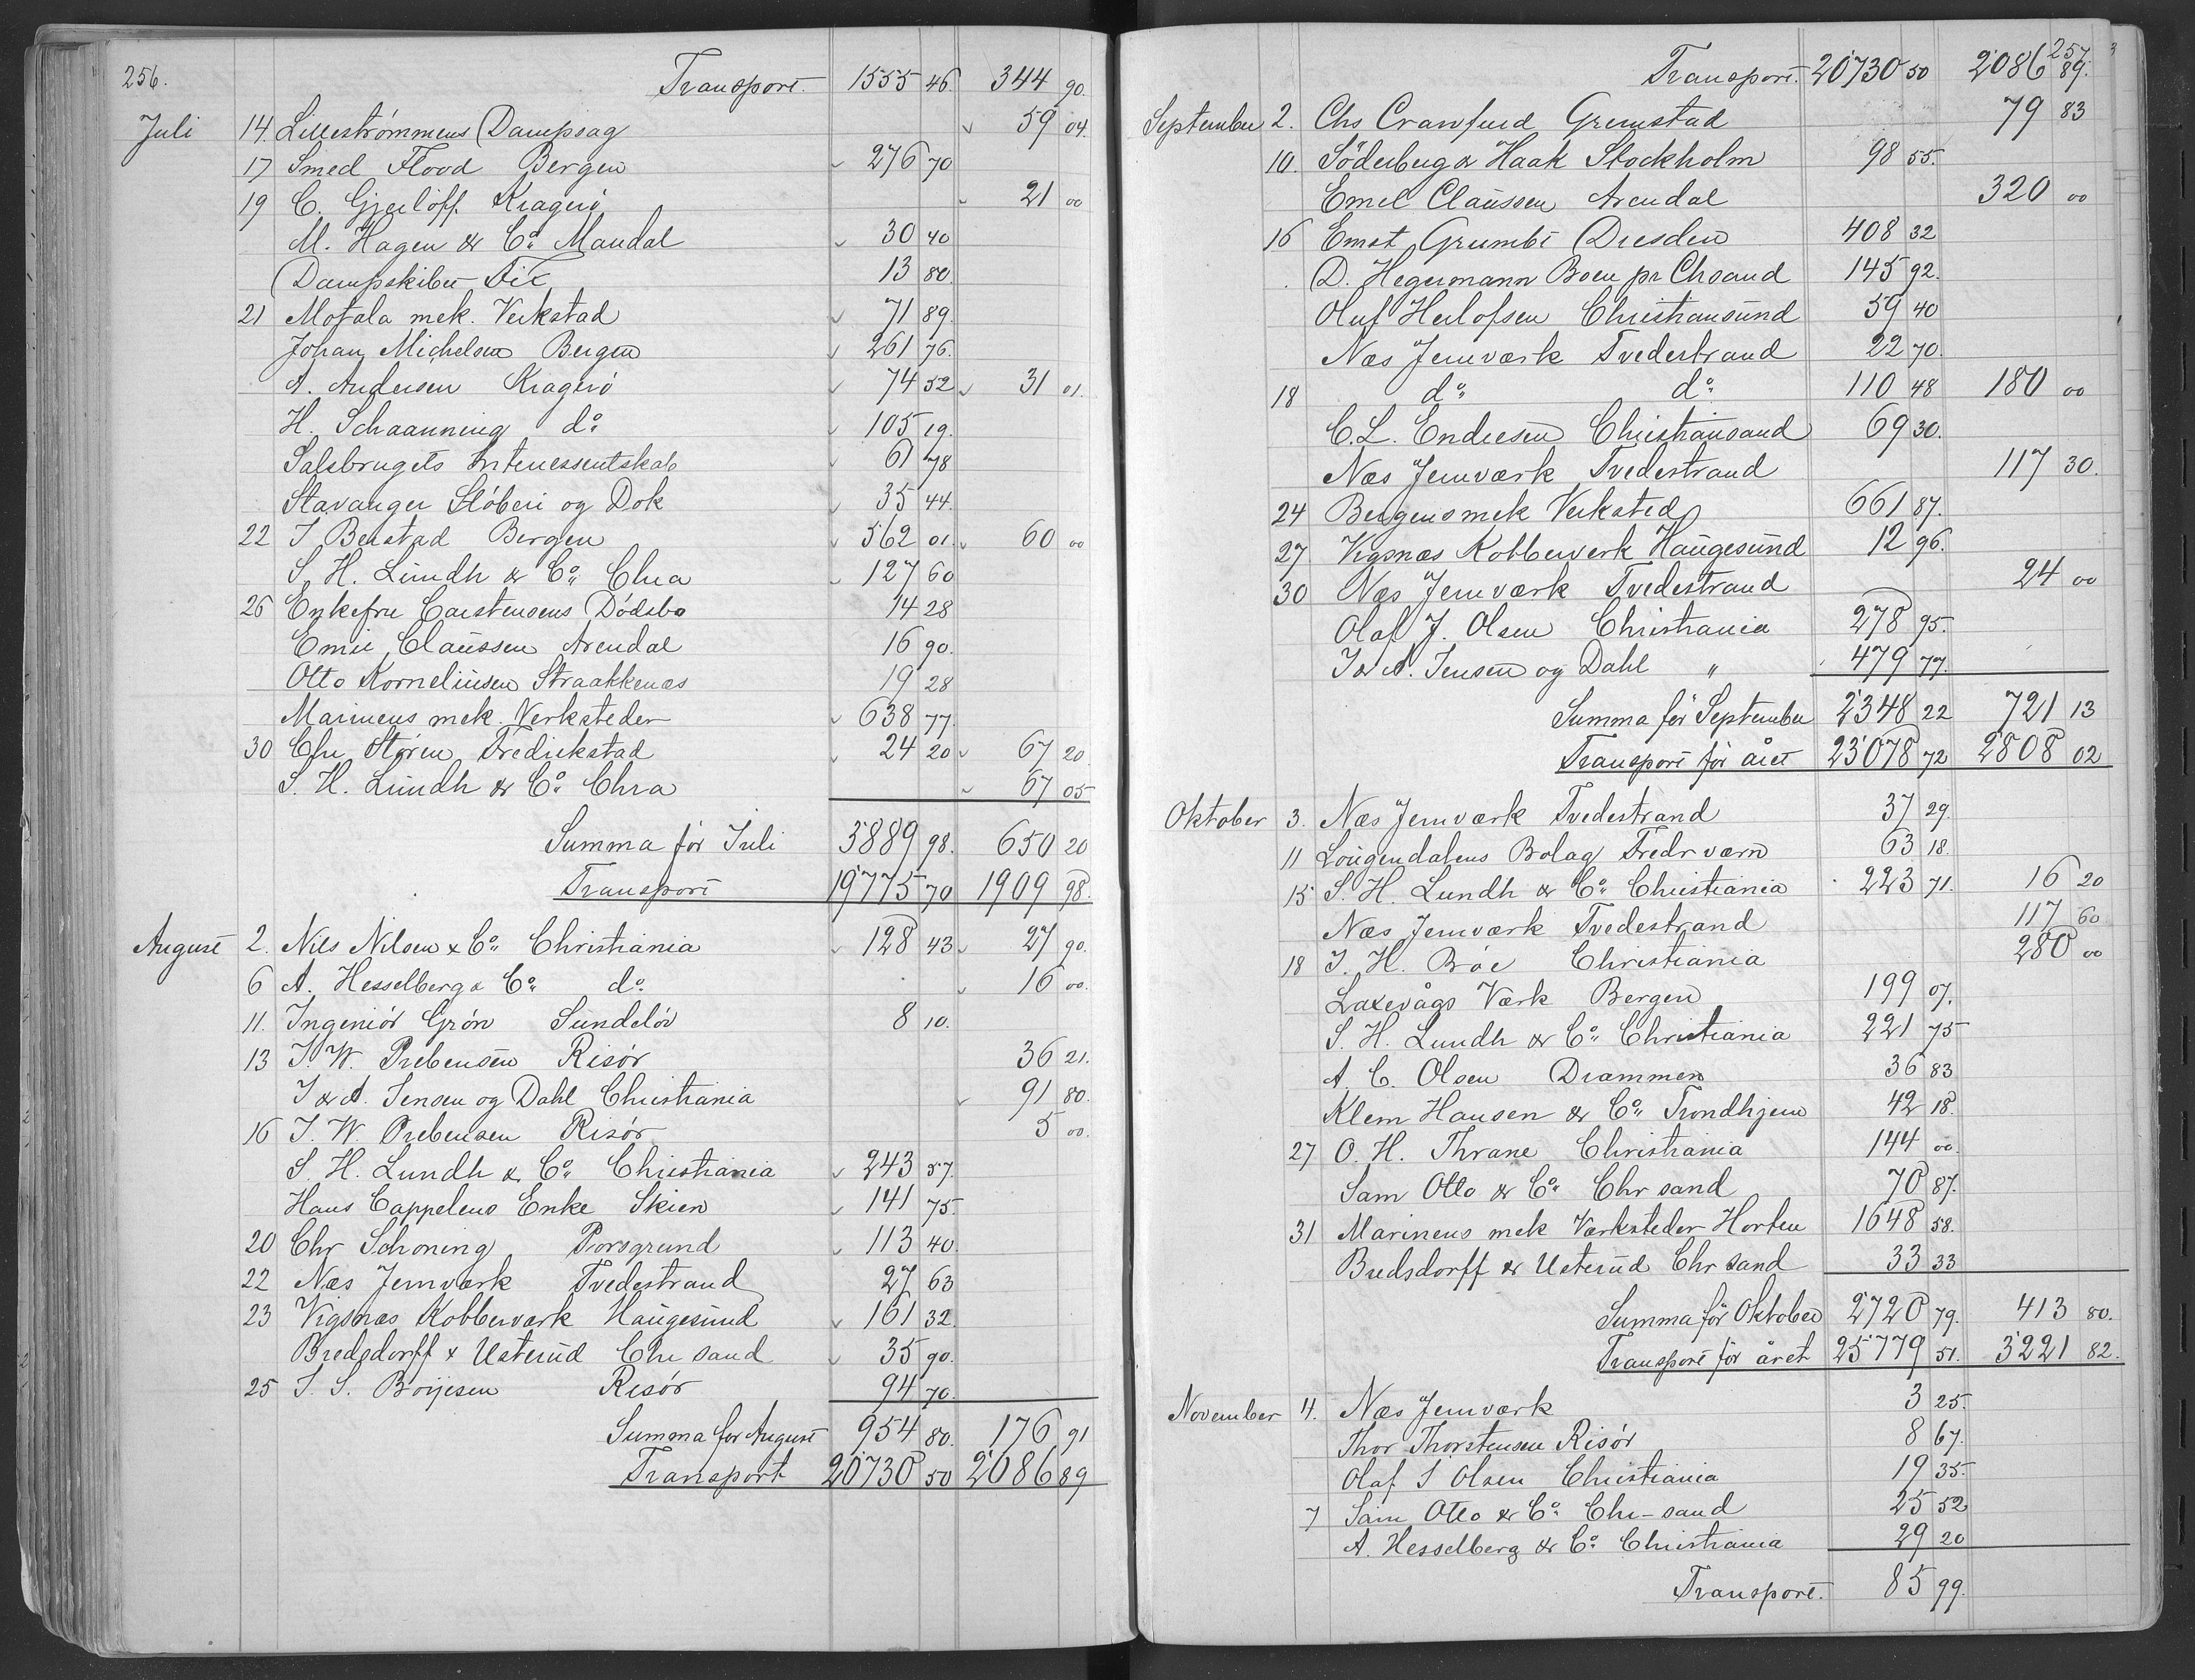 256.
Transport. 1555 46. 344 90.
Juli 14. Lillestrømmens Dampsag 59 04.
17 Smed Flood Bergen 276 70
19 C. Gjerløff. Kragerö 21 00
M. Hagen & Co. Mandal 30 40
Dampskibet Fix 13 80.
21 Motala mek. Verkstad 71 89.
Johan Michelsen Bergen 261 76.
A. Andersen Kragerö 74 52 31 01.
H. Schaanning do. 105 19.
Salsbrugets Interessentskab 61 78
Stavanger Stöberi og Dok 35 44.
22 J Beistad Bergen 562 01. 60 00
S. H. Lundh & Co. Chra 127 60
26 Enkefru Carstensens Dödsbo 14 28
Emil Claussen Arendal 16 90.
Otto Korneliusen Straakkenæs 19 28
Marinens mek. Verksteder 638 77.
30 Chr Støren Fredrikstad 24 20 67 20
S. H. Lundh & Co. Chra 67 05
Summa för Juli 3889 98. 650 20
Transport 19775 70 1909 98.
August 2. Nils Nilsen & Co. Christiania 128 43 27 90.
6 A. Hesselberg & Co. do. 16 00.
11. Ingeniör Grøn Sundeløv 8 10.
13 J. W. Prebensen Risör 36 21.
J & A. Jensen og Dahl Christiania 91 80.
16 J. W. Prebensen Risör 5 00.
S. H. Lundh & Co. Christiania 243 57.
Hans Cappelens Enke Skien 141 75.
20 Chr Schoning Porsgrund 113 40.
22 Næs Jernværk Tvedestrand 27 63
23 Vigsnæs Kobberværk Haugesund 161 32.
Bredsdorff & Usterud Chr sand 35 90.
25 J. S. Boijesen Risör 94 70.
Summa for August 954 80. 176 91
Transport 20730 50 2086 89
257
Transport. 20730 50 2086 89.
September 2. Chs Crawfurd Grimstad 79 83
10. Söderberg & Haak Stockholm 98 55.
Emil Claussen Arendal 320 00
16 Ernst Grumbt Dresden 408 32
D. Hegermann Boen pr Chsand 145 92.
Oluf Herlofsen Christiansund 59 40
Næs Jernværk Tvedestrand 22 70.
18 do. do. 110 48 180 00
C. L. Endresen Christiansand 69 30.
Næs Jernværk Tvedestrand 117 30.
24 Bergens mek Verksted 661 87.
27 Vigsnæs Kobberverk Haugesund 12 96.
30 Næs Jernværk Tvedestrand 24 00
Olaf J. Olsen Christiania 278 95.
J & A. Jensen og Dahl " 479 77.
Summa för September 2348 22 721 13
Transport för året 23078 72 2808 02
Oktober 3. Næs Jernværk Tvedestrand 37 29.
11 Lougendalens Bolag Fredr værn 63 18.
15 S. H. Lundh & Co. Christiania 223 71. 16 20
Næs Jernværk Tvedestrand 117 60
18 J. H. Bröe Christiania 280 00
Laxevågs Værk Bergen 199 07.
S. H. Lundh & Co. Christiania 221 75
A. C. Olsen Drammen 36 83
Klem Hansen & Co. Trondhjem 42 18.
27 O. H. Thrane Christiania 144 00.
Sam Otto & Co. Chr sand 70 87.
31 Marinens mek Værksteder Horten 1648 58.
Bredsdorff & Usterud Chr sand 33 33
Summa för Oktober 2720 79. 413 80.
Transport för året 25779 51. 3221 82.
November 4. Næs Jernværk 3 25.
Thor Thorstensen Risör 8 67.
Olaf J Olsen Christiania 19 35.
7 Sam Otto & Co. Chr-sand 25 52
A. Hesselberg & Co. Christiania 29 20
Transport. 85 99.